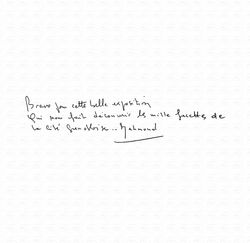 Bravo pour cette belle exposition
qui nous fait découvrir les mille facettes de
la cité grenobloise... Mahmoud